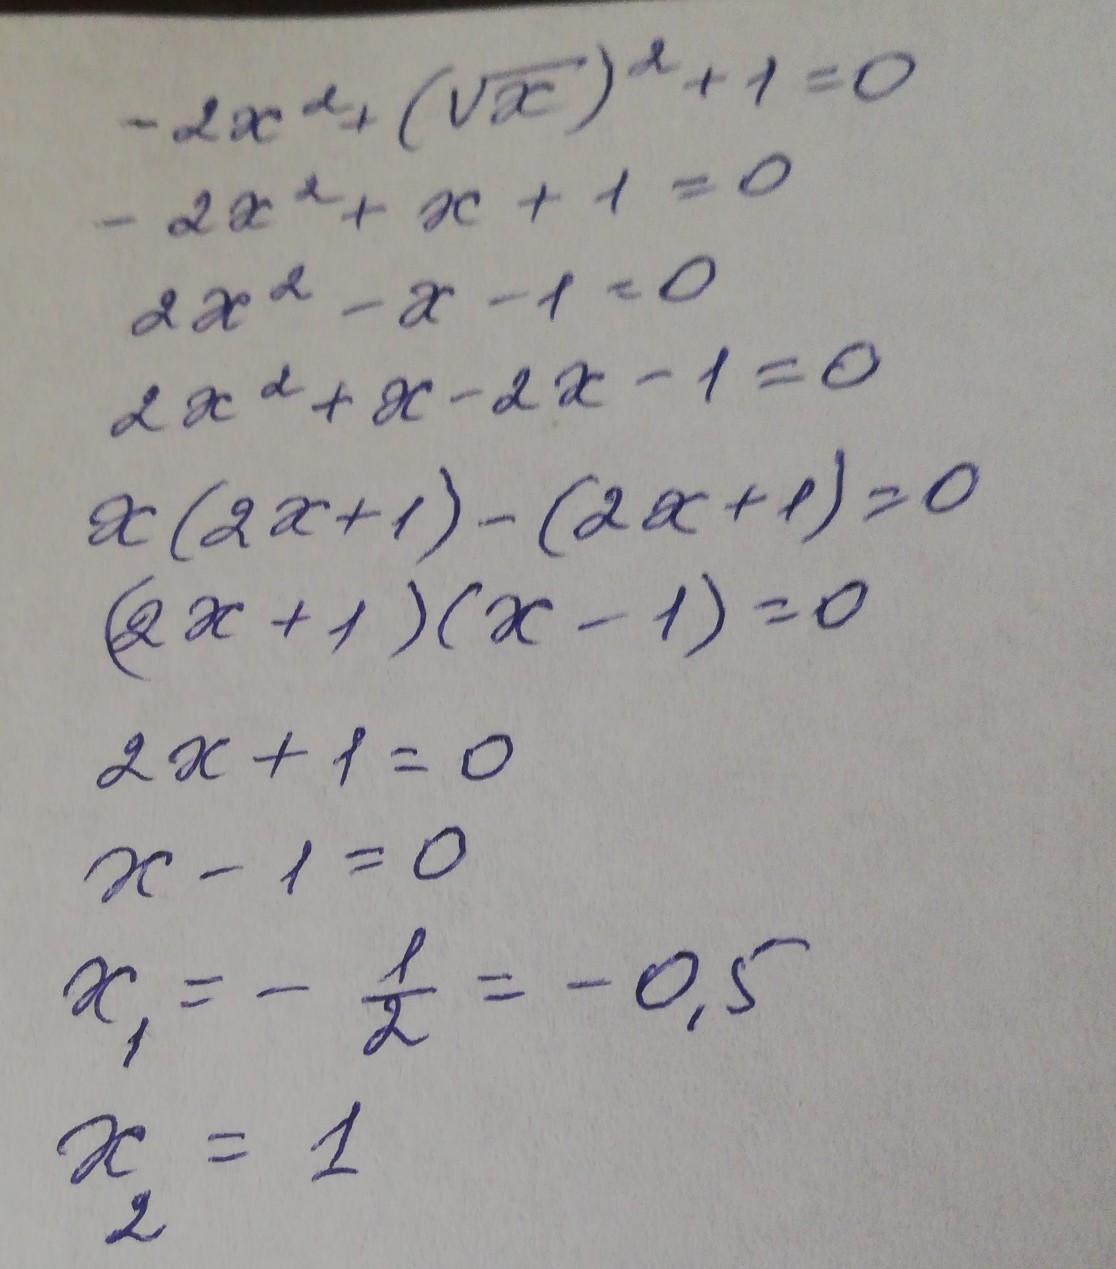 -2x² + (√x)² + 1 = 0
-2x² + x + 1 = 0
2x² - x - 1 = 0
2x² + x - 2x - 1 = 0
x(2x+1) - (2x+1) = 0
(2x+1)(x-1) = 0
2x + 1 = 0
x - 1 = 0
x₁ = - 1/2 = -0,5
x₂ = 1